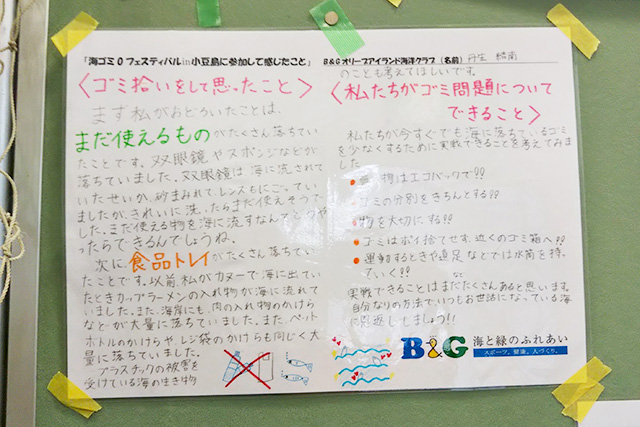 「海ゴミ0フェスティバルin小豆島に参加して感じたこと」
B&Gオリーブアイランド海洋クラブ（名前）丹生
＜ゴミ拾いをして思ったこと＞
まず私がおどろいたことは、
まだ使えるものがたくさん落ちてい
たことです。双眼鏡やスポンジなどが
落ちていました。双眼鏡は海に流されて
いたせいか、砂まみれで、レンズもにごってい
ましたが、きれいに洗ったらまだ使えそうで
した。まだ使える物を海に流すなんてどうや
ったらできるんでしょうね。
次に、食品トレイがたくさん落ちてい
たことです。以前、私がカヌーで海に出てい
たときカップラーメンの入れ物が海に流れて
いました。また、海岸にも、肉の入れ物のかけら
などが大量に落ちていました。また、ペット
ボトルのかけらや、レジ袋のかけらも同じく大
量に落ちていました。
プラスチックの被害を
受けている海の生き物
のことも考えてほしいです。
＜私たちがゴミ問題について
できること＞
私たちが今すぐでも海に落ちているゴミ
を少なくするために実戦できることを考えてみま
した
物はエコバックで!!
ゴミの分別をきちんとする!!
物を大切にする!!
ゴミはポイ捨てせず、近くのゴミ箱へ!!
運動するときや遠足などでは水筒を持っ
ていく!!
など
実戦できることはまだたくさんあると思います。
自分なりの方法でいつもお世話になっている海
に恩返しましょう!!
B&G 海と緑のふれあい
スポーツ。健康。人づくり。